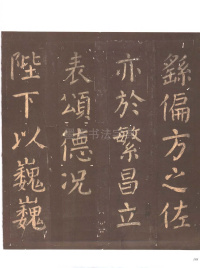 繇偏方之佐
亦於繁昌立
表頌德况
陛下以巍巍